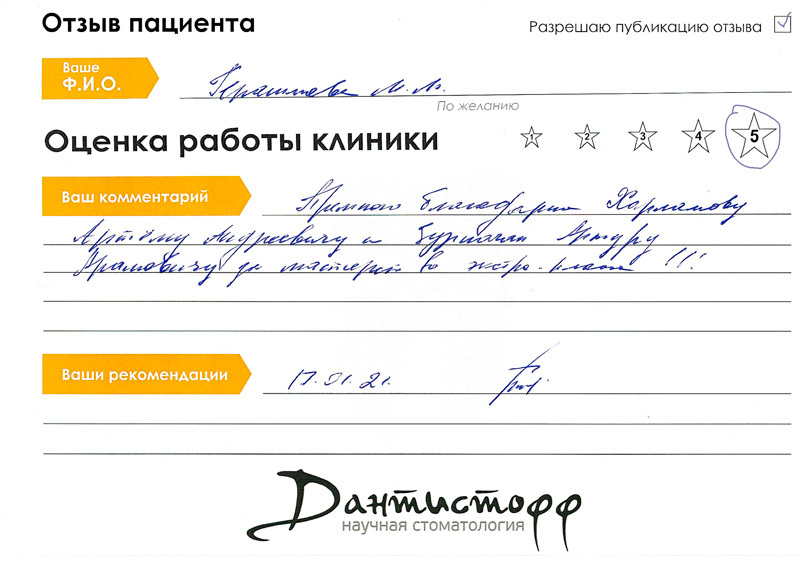 Отзыв пациента
Разрешаю публикацию отзыва
Ваше
Ф.И.О.
М. М.
По желанию
Оценка работы клиники
1 2 3 4 5
Ваш комментарий
Премного благодарна Харламову
Артёму Андреевичу и Артуру
Арамовичу за мастерство экстра-класса !!!
Ваши рекомендации
17.01.21.
Дантистофф
научная стоматология